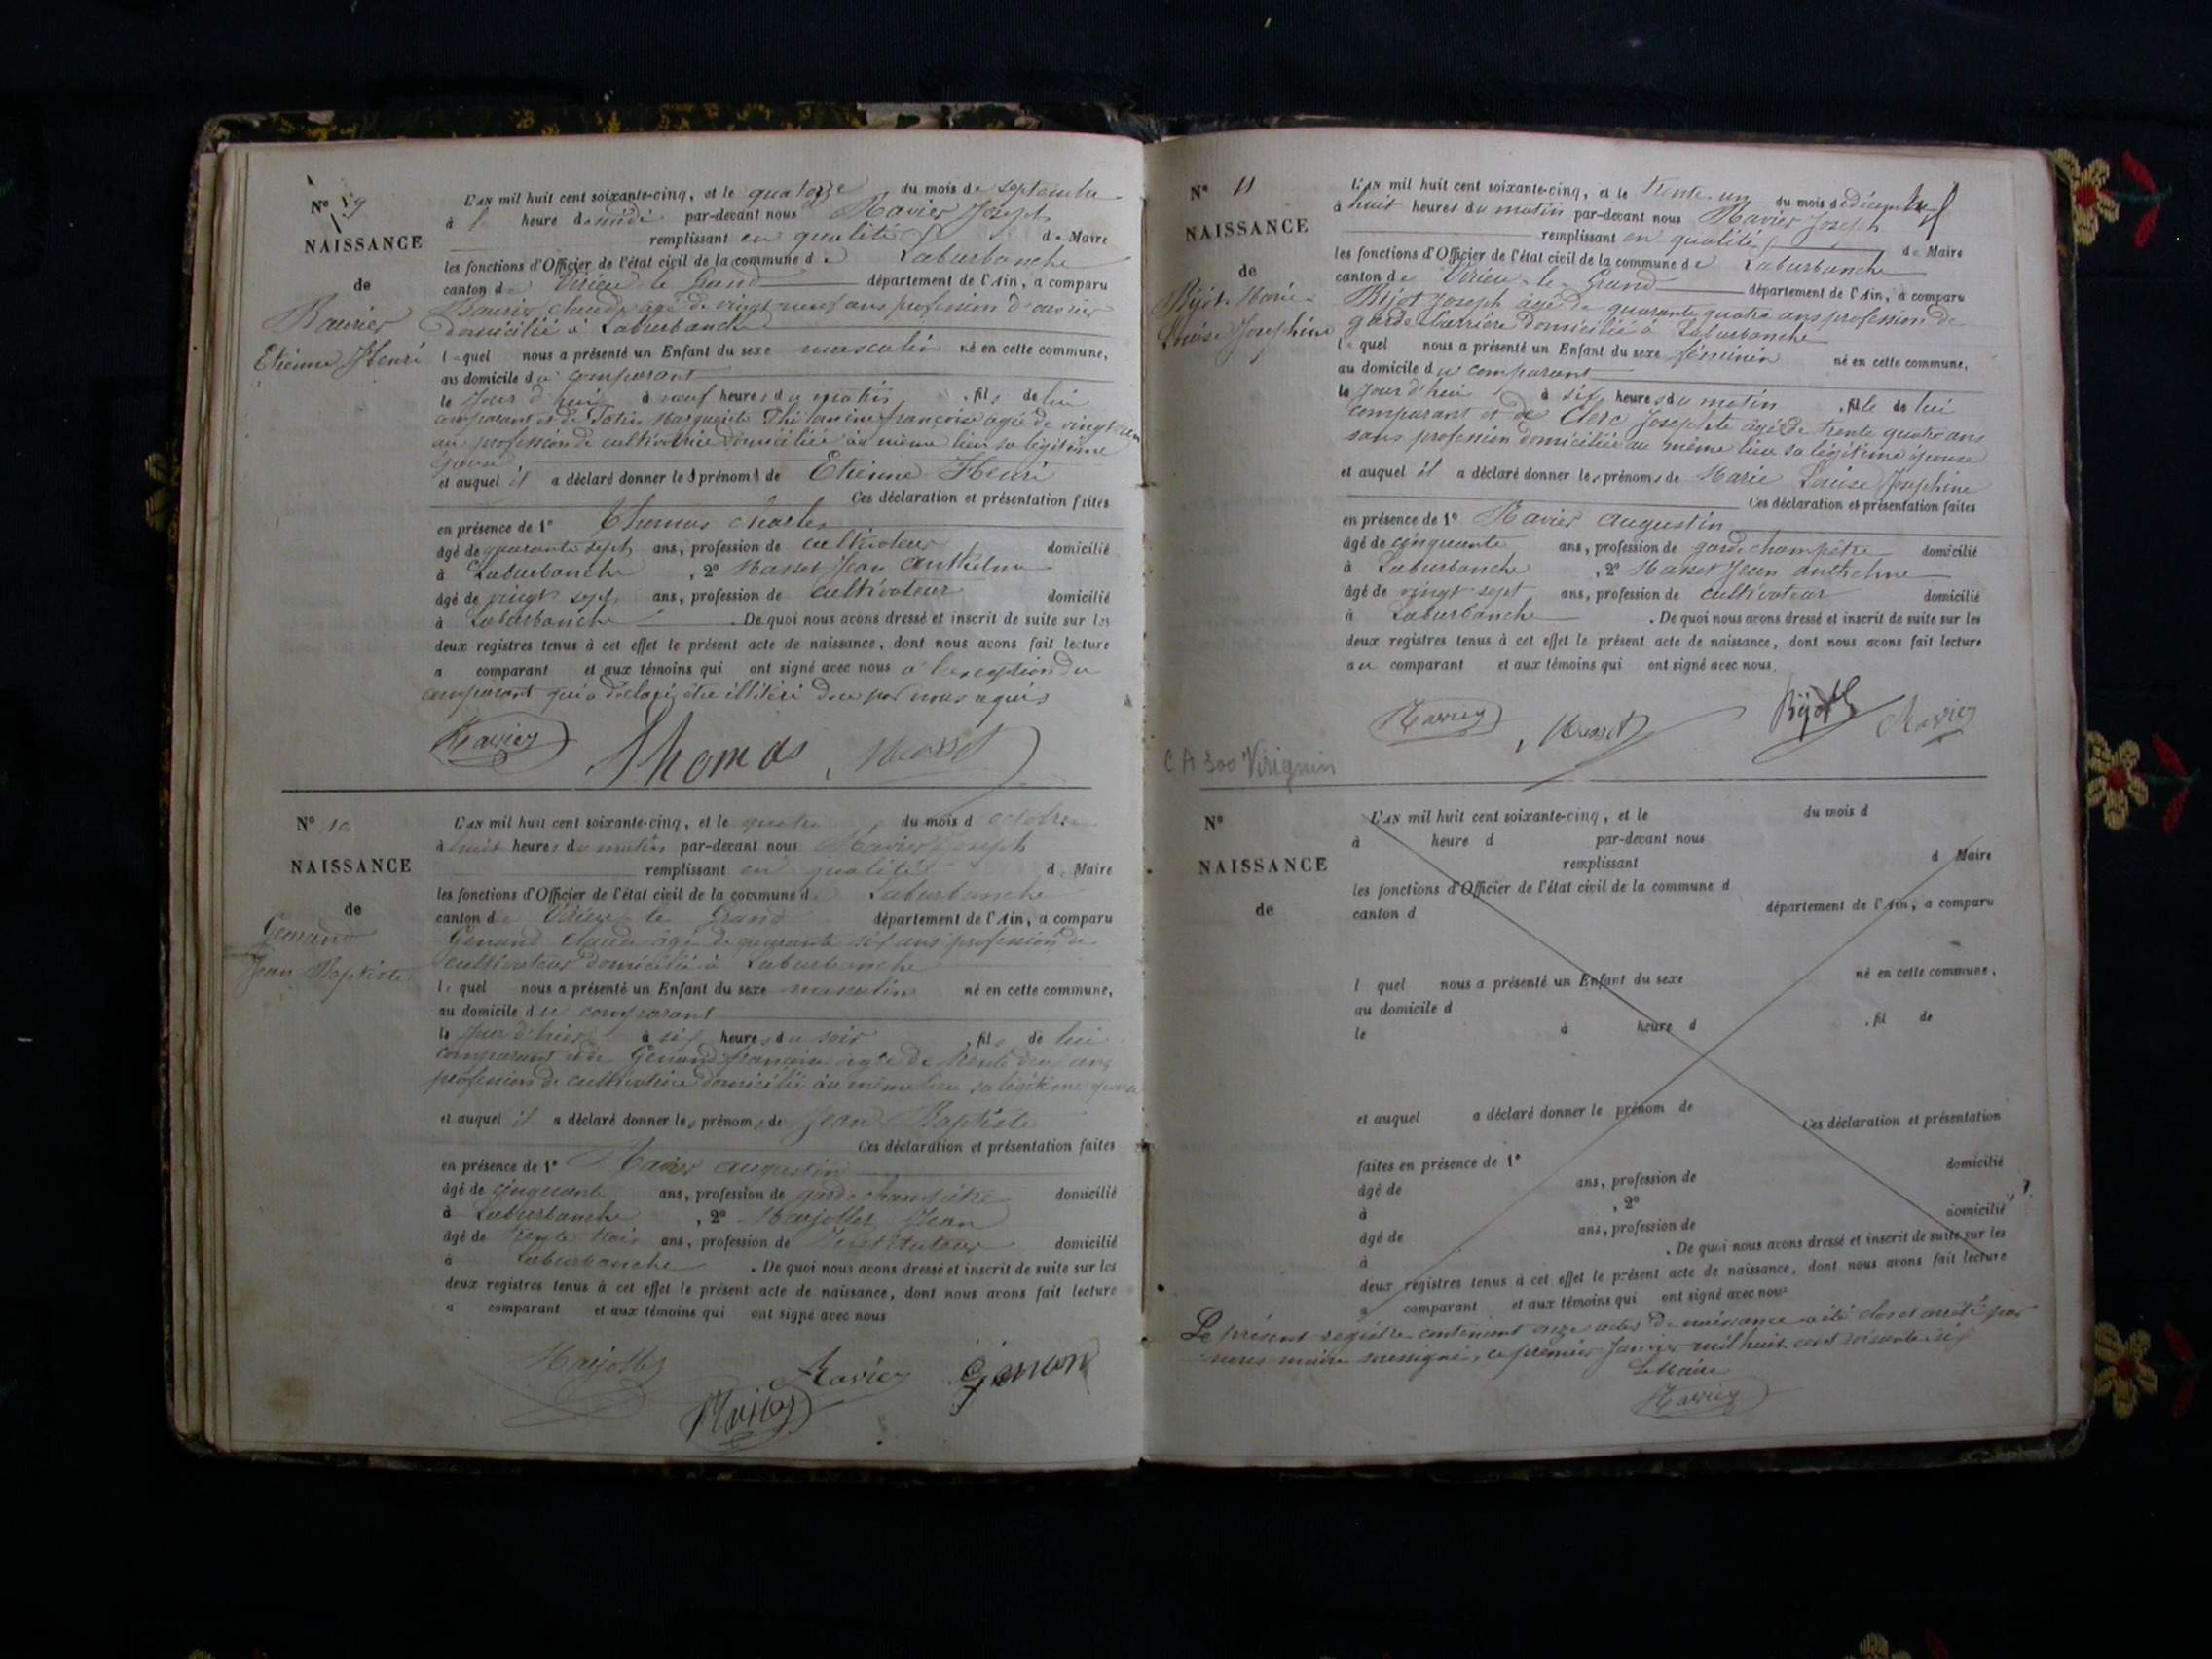 N° 9
NAISSANCE
de
Ravier
Etienne Henri
L'AN mil huit cent soixante-cinq, et le quatorze du mois de septembre
à heure de midi par-devant nous Ravier Joseph
remplissant en qualité de Maire
les fonctions d'Officier de l'état civil de la commune de Laburbanche
canton de Virieu le Grand département de l'Ain, a comparu
Ravier Claude agé de vingt neuf ans profession d'ouvrier
domicilié à Laburbanche
lequel nous a présenté un Enfant du sexe masculin né en cette commune,
au domicile du comparant
le jour d'hui à neuf heures du matin, fils de lui
comparant et de Marguerite françoise agée de vingt
ans profession de cultivatrice domiciliée au même lieu sa légitime
épouse
et auquel il a déclaré donner les prénoms de Etienne Henri
Ces déclaration et présentation faites
en présence de 1° Thomas Charles
âgé de quarante sept ans, profession de cultivateur domicilié
à Laburbanche, 2° Masset Jean Anthelme
âgé de vingt sept ans, profession de cultivateur domicilié
à Laburbanche. De quoi nous avons dressé et inscrit de suite sur les
deux registres tenus à cet effet le présent acte de naissance, dont nous avons fait lecture
a comparant et aux témoins qui ont signé avec nous à l'exception du
comparant qui a déclaré être illitéré de ce par nous
Ravier Thomas Masset
N° 10
NAISSANCE
de
Genand
Jean Baptiste
L'AN mil huit cent soixante-cinq, et le quatre du mois d octobre
à huit heures du matin par-devant nous Ravier Joseph
remplissant en qualité de Maire
les fonctions d'Officier de l'état civil de la commune de Laburbanche
canton de Virieu le Grand département de l'Ain, a comparu
Genand Claude âgé de quarante six ans profession de
cultivateur domicilié à Laburbanche
lequel nous a présenté un Enfant du sexe masculin né en cette commune,
au domicile du comparant
le jour d'hier à six heures du soir, fils de lui
comparant et de Genand françoise agée de trente deux ans
profession de cultivatrice domiciliée au même lieu sa légitime épouse
et auquel il a déclaré donner les prénoms de Jean Baptiste
Ces déclaration et présentation faites
en présence de 1° Ravier Augustin
âgé de cinquante ans, profession de garde champêtre domicilié
à Laburbanche, 2° Marjollet Jean
âgé de trente trois ans, profession de Instituteur domicilié
à Laburbanche. De quoi nous avons dressé et inscrit de suite sur les
deux registres tenus à cet effet le présent acte de naissance, dont nous avons fait lecture
a comparant et aux témoins qui ont signé avec nous
Marjollet Ravier Genan
Ravier
N° 11
NAISSANCE
de
Bijot Marie
Louise Josephine
L'AN mil huit cent soixante-cinq, et le trente-un du mois de décembre
à huit heures du matin par-devant nous Ravier Joseph
remplissant en qualité de Maire
les fonctions d'Officier de l'état civil de la commune de Laburbanche
canton de Virieu-le-Grand département de l'Ain, a comparu
Bijot Joseph âgé de quarante quatre ans profession de
garde-barrière domicilié à Laburbanche
lequel nous a présenté un Enfant du sexe féminin né en cette commune,
au domicile du comparant
le jour d'hui à six heures du matin, fille de lui
comparant et de Clerc Josephte âgée de trente quatre ans
sans profession domiciliée au même lieu sa légitime épouse
et auquel il a déclaré donner les prénoms de Marie Louise Josephine
Ces déclaration et présentation faites
en présence de 1° Ravier Augustin
âgé de cinquante ans, profession de garde champêtre domicilié
à Laburbanche, 2° Masset Jean Anthelme
âgé de vingt sept ans, profession de cultivateur domicilié
à Laburbanche. De quoi nous avons dressé et inscrit de suite sur les
deux registres tenus à cet effet le présent acte de naissance, dont nous avons fait lecture
au comparant et aux témoins qui ont signé avec nous.
Ravier Masset Bijot Ravier
CA 300 Virignin
N°
NAISSANCE
de
L'AN mil huit cent soixante-cinq, et le du mois d
à heure d par-devant nous
remplissant d Maire
les fonctions d'Officier de l'état civil de la commune d
canton d département de l'Ain, a comparu
l quel nous a présenté un Enfant du sexe né en cette commune,
au domicile d
le à heure d, fil de
et auquel a déclaré donner le prénom de
Ces déclaration et présentation
faites en présence de 1°
âgé de ans, profession de domicilié
à, 2°
âgé de ans, profession de domicilié
à. De quoi nous avons dressé et inscrit de suite sur les
deux registres tenus à cet effet le présent acte de naissance, dont nous avons fait lecture
a comparant et aux témoins qui ont signé avec nous
Le présent registre contenant onze actes de naissance a été clos et arrêté par
nous maire soussigné, ce premier Janvier mil huit cent soixante six
Le Maire
Ravier